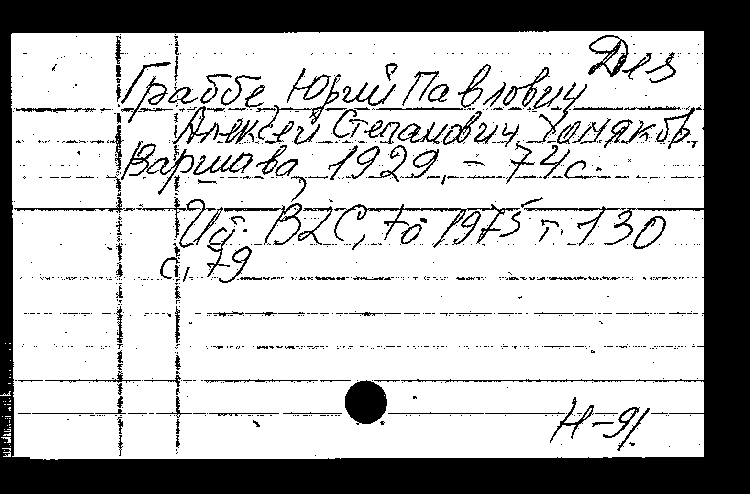 Дез
Граббе, Юрий Павлович
Алексей Степанович Хомяков.
Варшава, 1929, – 74с.
Ист. В2С, то 1975 т. 130
с, 79
Н-91.